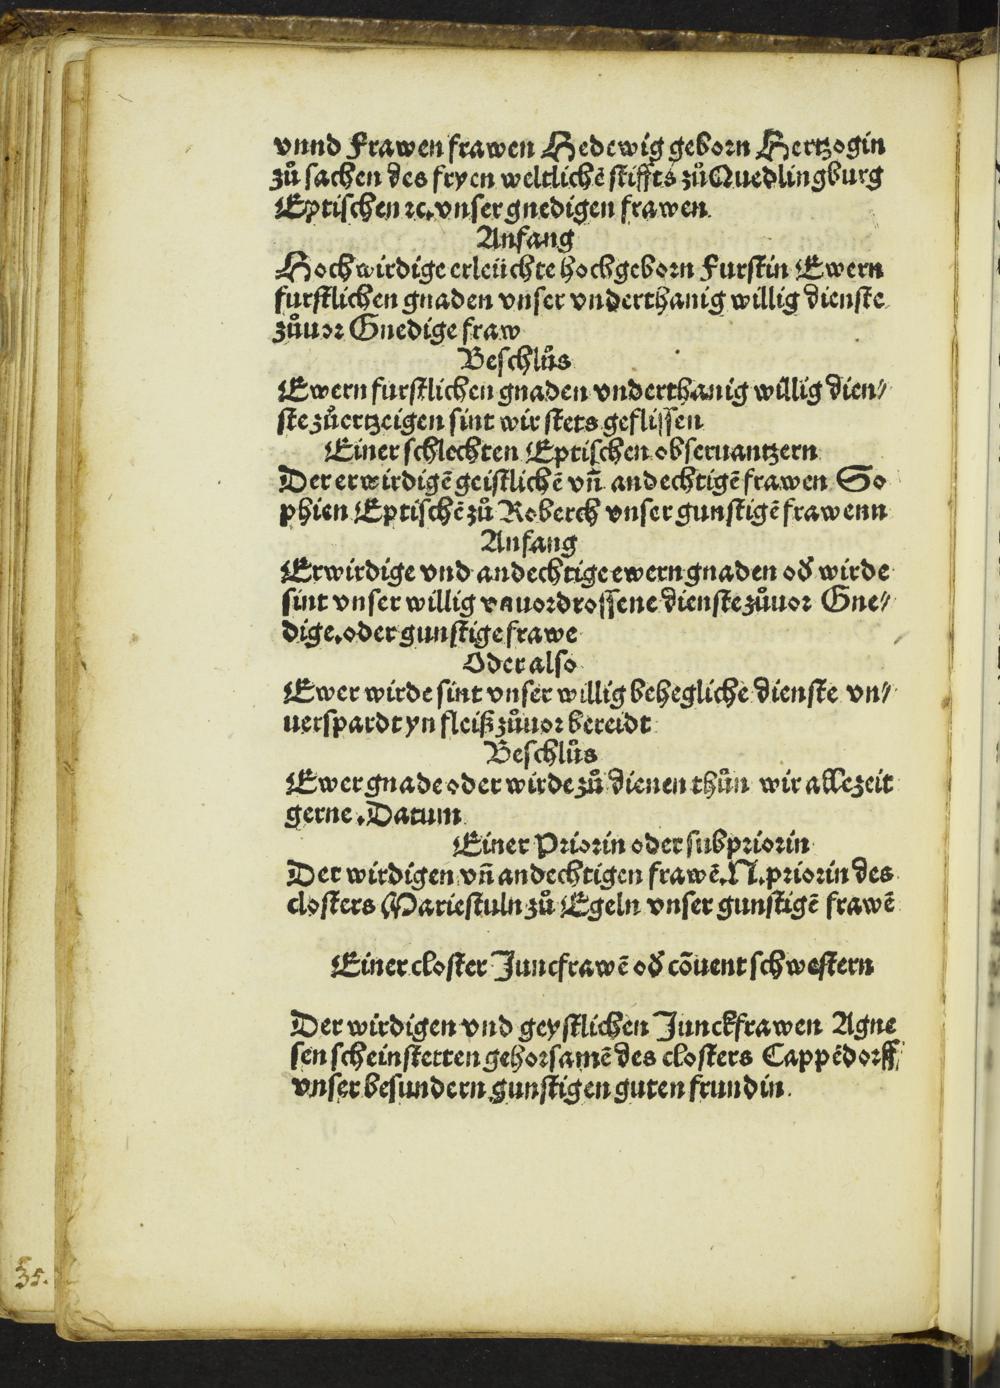 vnnd Frawen frawen Hedewig geborn Hertzogin
zů sachen des fryen weltlichē stiffts zů Quedlingburg
Eptischen ꝛc. vnser gnedigen frawen
Anfang
Hochwirdige erleüchte hochgeborn Furstin Ewern
furstlichen gnaden vnser vnderthanig willig dienste
zůuor Gnedige fraw
Beschlůs
Ewern furstlichen gnaden vnderthanig willig dien⸗
ste zůertzeigen sint wir stets geflissen
Einer schlechten Eptischen obseruantzern
Der erwirdigē geistlichē vñ andechtigē frawen So
phien Eptischē zů Roberch vnser gunstigē frawenn
Anfang
Erwirdige vnd andechtige ewern gnaden oď wirde
sint vnser willig vnuordrossene dienste zůuor Gne⸗
dige. oder gunstige frawe
Oder also
Ewer wirde sint vnser willig behegliche dienste vn⸗
uerspardt yn fleiß zůuor bereidt
Beschlůs
Ewer gnade oder wirde zů dienen thůn wir allezeit
gerne. Datum
Einer Priorin oder subpriorin
Der wirdigen vñ andechtigen frawē. N. priorin des
closters Mariestuln zů Egeln vnser gunstigē frawē
Einer closter Juncfrawē oď cōuent schwestern
Der wirdigen vnd geystlichen Junckfrawen Agne
sen scheinstetten gehorsamē des closters Cappēdorff
vnser besundern gunstigen guten frundin.
35.